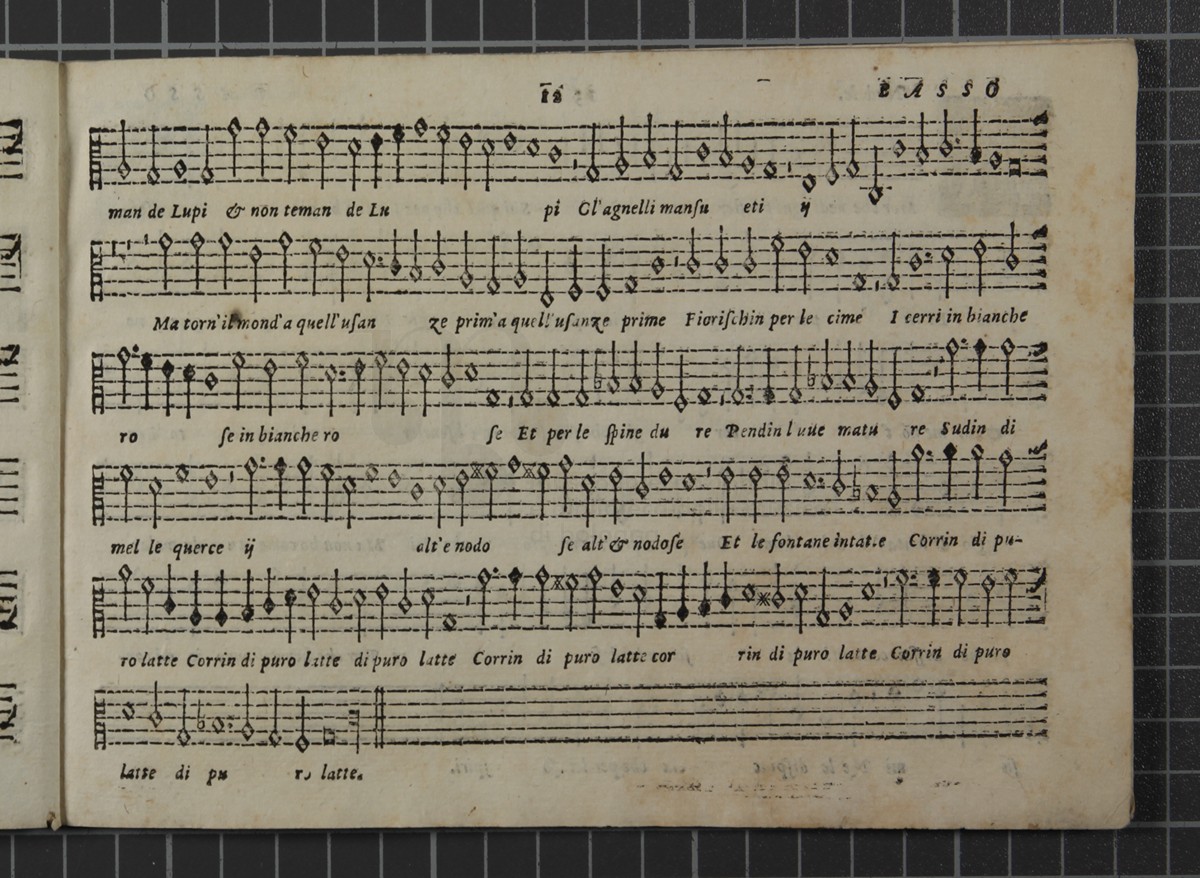 12 BASSO
man de Lupi & non teman de Lu pi Gl'agnelli mansu eti ij
Ma torn'il mond'a quell'usan ze prim'a quell'usanze prime Fiorischin per le cime I cerri in bianche
ro se in bianche ro se Et per le spine du re Pendin l uue matu re Sudin di
mel le querce ij alt'e nodo se alt'& nodose Et le fontane intatte Corrin di pu-
ro latte Corrin di puro latte di puro latte Corrin di puro latte cor rin di puro latte Corrin di puro
latte di pu ro latte.